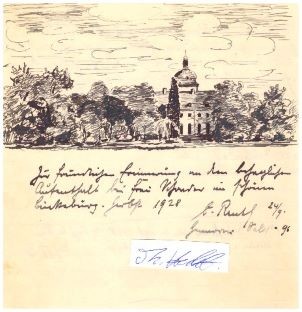 Zur freundlichen Erinnerung an den behaglichen
Aufenthalt bei Frau Schrader im schönen
Bückeburg. Herbst 1928
24/9.
Hannover